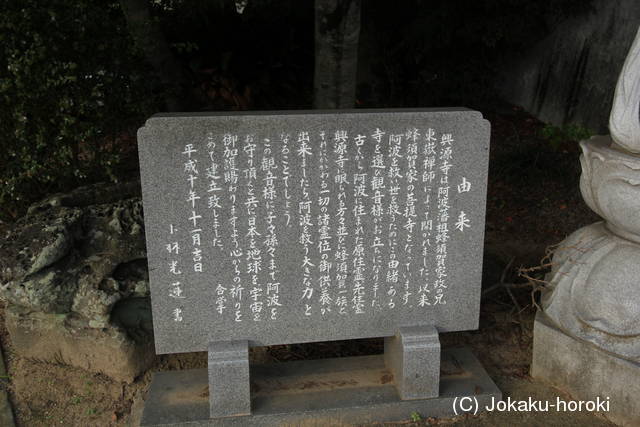 由来
興源寺は阿波藩祖蜂須賀家政の兄
東嶽禅師によって開かれました。以来
蜂須賀家の菩提寺となっています。
阿波を救い世を救うためにこの由緒ある
寺を選び観音様がお立ちになりました。
古くから阿波に住まれた原住霊先住霊
興源寺に眠られる方々並びに蜂須賀一族と
それにかかわる一切の諸霊位の御供養が
出来ましたら阿波を救う大きな力と
なることでしょう。
この観音様に子々孫々まで阿波を
お守り頂くと共に日本を地球を宇宙を
御加護賜わりますよう心からの祈りを
こめて建立致しました。
合掌
平成十年十一月吉日
光蓮 書
(C) Jokaku-horoki.com